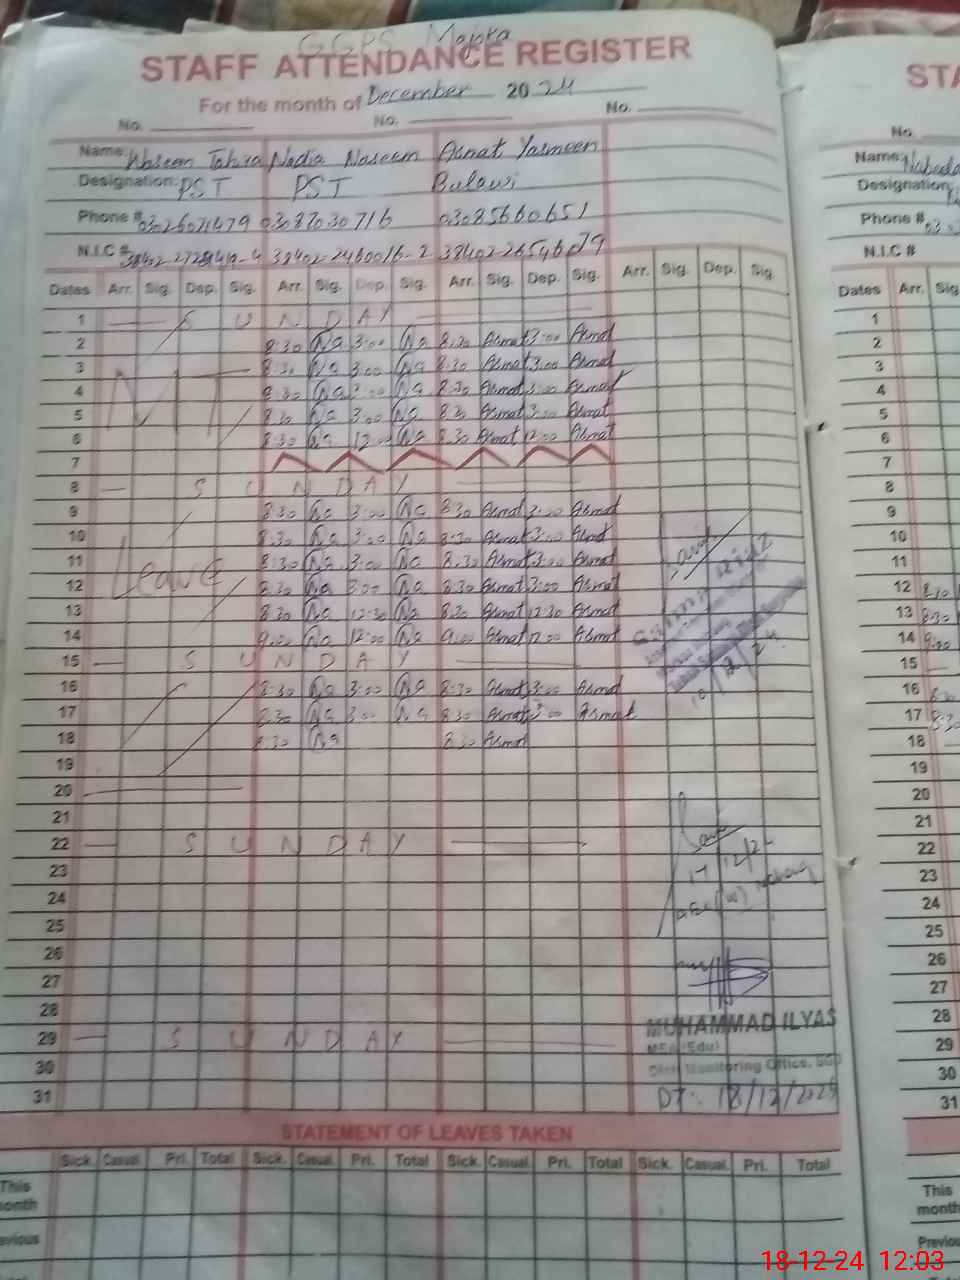 GGPS Majoka
STAFF ATTENDANCE REGISTER
For the month of December 2024
No. No. No.
Name: Waseem Tahira Nadia Naseem Asmat Yasmeen
Designation: PST PST Bulawi
Phone # 03087030716 03085660651
N.I.C # 38402-2460016-2 38402-26546079
Dates Arr. Sig. Dep. Sig. Arr. Sig. Dep. Sig. Arr. Sig. Dep. Sig. Arr. Sig. Dep. Sig.
1 SUNDAY
2 8:30 Na 3:00 Na 8:30 Asmat 3:00 Asmat
3 8:30 Na 3:00 Na 8:30 Asmat 3:00 Asmat
4 8:30 Na 3:00 Na 8:30 Asmat 3:00 Asmat
5 8:30 Na 3:00 Na 8:30 Asmat 3:00 Asmat
6 8:30 Na 12:00 Na 8:30 Asmat 12:00 Asmat
7
8 SUNDAY
9 8:30 Na 3:00 Na 8:30 Asmat 3:00 Asmat
10 8:30 Na 3:00 Na 8:30 Asmat 3:00 Asmat
11 Leave 8:30 Na 3:00 Na 8:30 Asmat 3:00 Asmat
12 8:30 Na 3:00 Na 8:30 Asmat 3:00 Asmat
13 8:30 Na 12:30 Na 8:30 Asmat 12:30 Asmat
14 9:00 Na 12:00 Na 9:00 Asmat 12:00 Asmat
15 SUNDAY
16 8:30 Na 3:00 Na 8:30 Asmat 3:00 Asmat
17 8:30 Na 3:00 Na 8:30 Asmat 3:00 Asmat
18 8:30 Na 8:30 Asmat
19
20
21
22 SUNDAY
23
24
25
26
27
28
29 SUNDAY
30
31
10/12/24
17/12/24
MUHAMMAD ILYAS
MEA (Edu)
Distt Monitoring Office, SGD
DT: 18/12/2024
STATEMENT OF LEAVES TAKEN
Sick. Casual. Pri. Total Sick. Casual. Pri. Total Sick. Casual. Pri. Total Sick. Casual. Pri. Total
This
month
evious
STA
No.
Name:
Designation:
Phone #
N.I.C #
Dates Arr. Sig
1
2
3
4
5
6
7
8
9
10
11
12 8:30
13 8:30
14 9:00
15
16 8:30
17 8:30
18
19
20
21
22
23
24
25
26
27
28
29
30
31
This
month
Previou
18-12-24 12:03